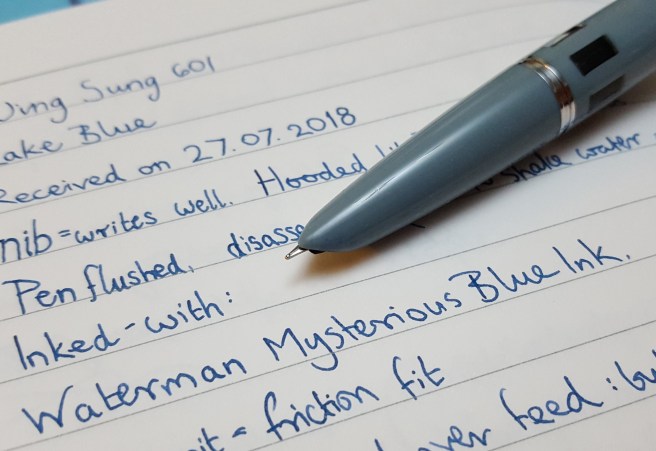 Sung 601
Blue
Received on 27.07.2018
nib = writes well. Hooded
Pen flushed, shake water
Inked-with:
Waterman Mysterious Blue Ink.
= friction fit
feed: